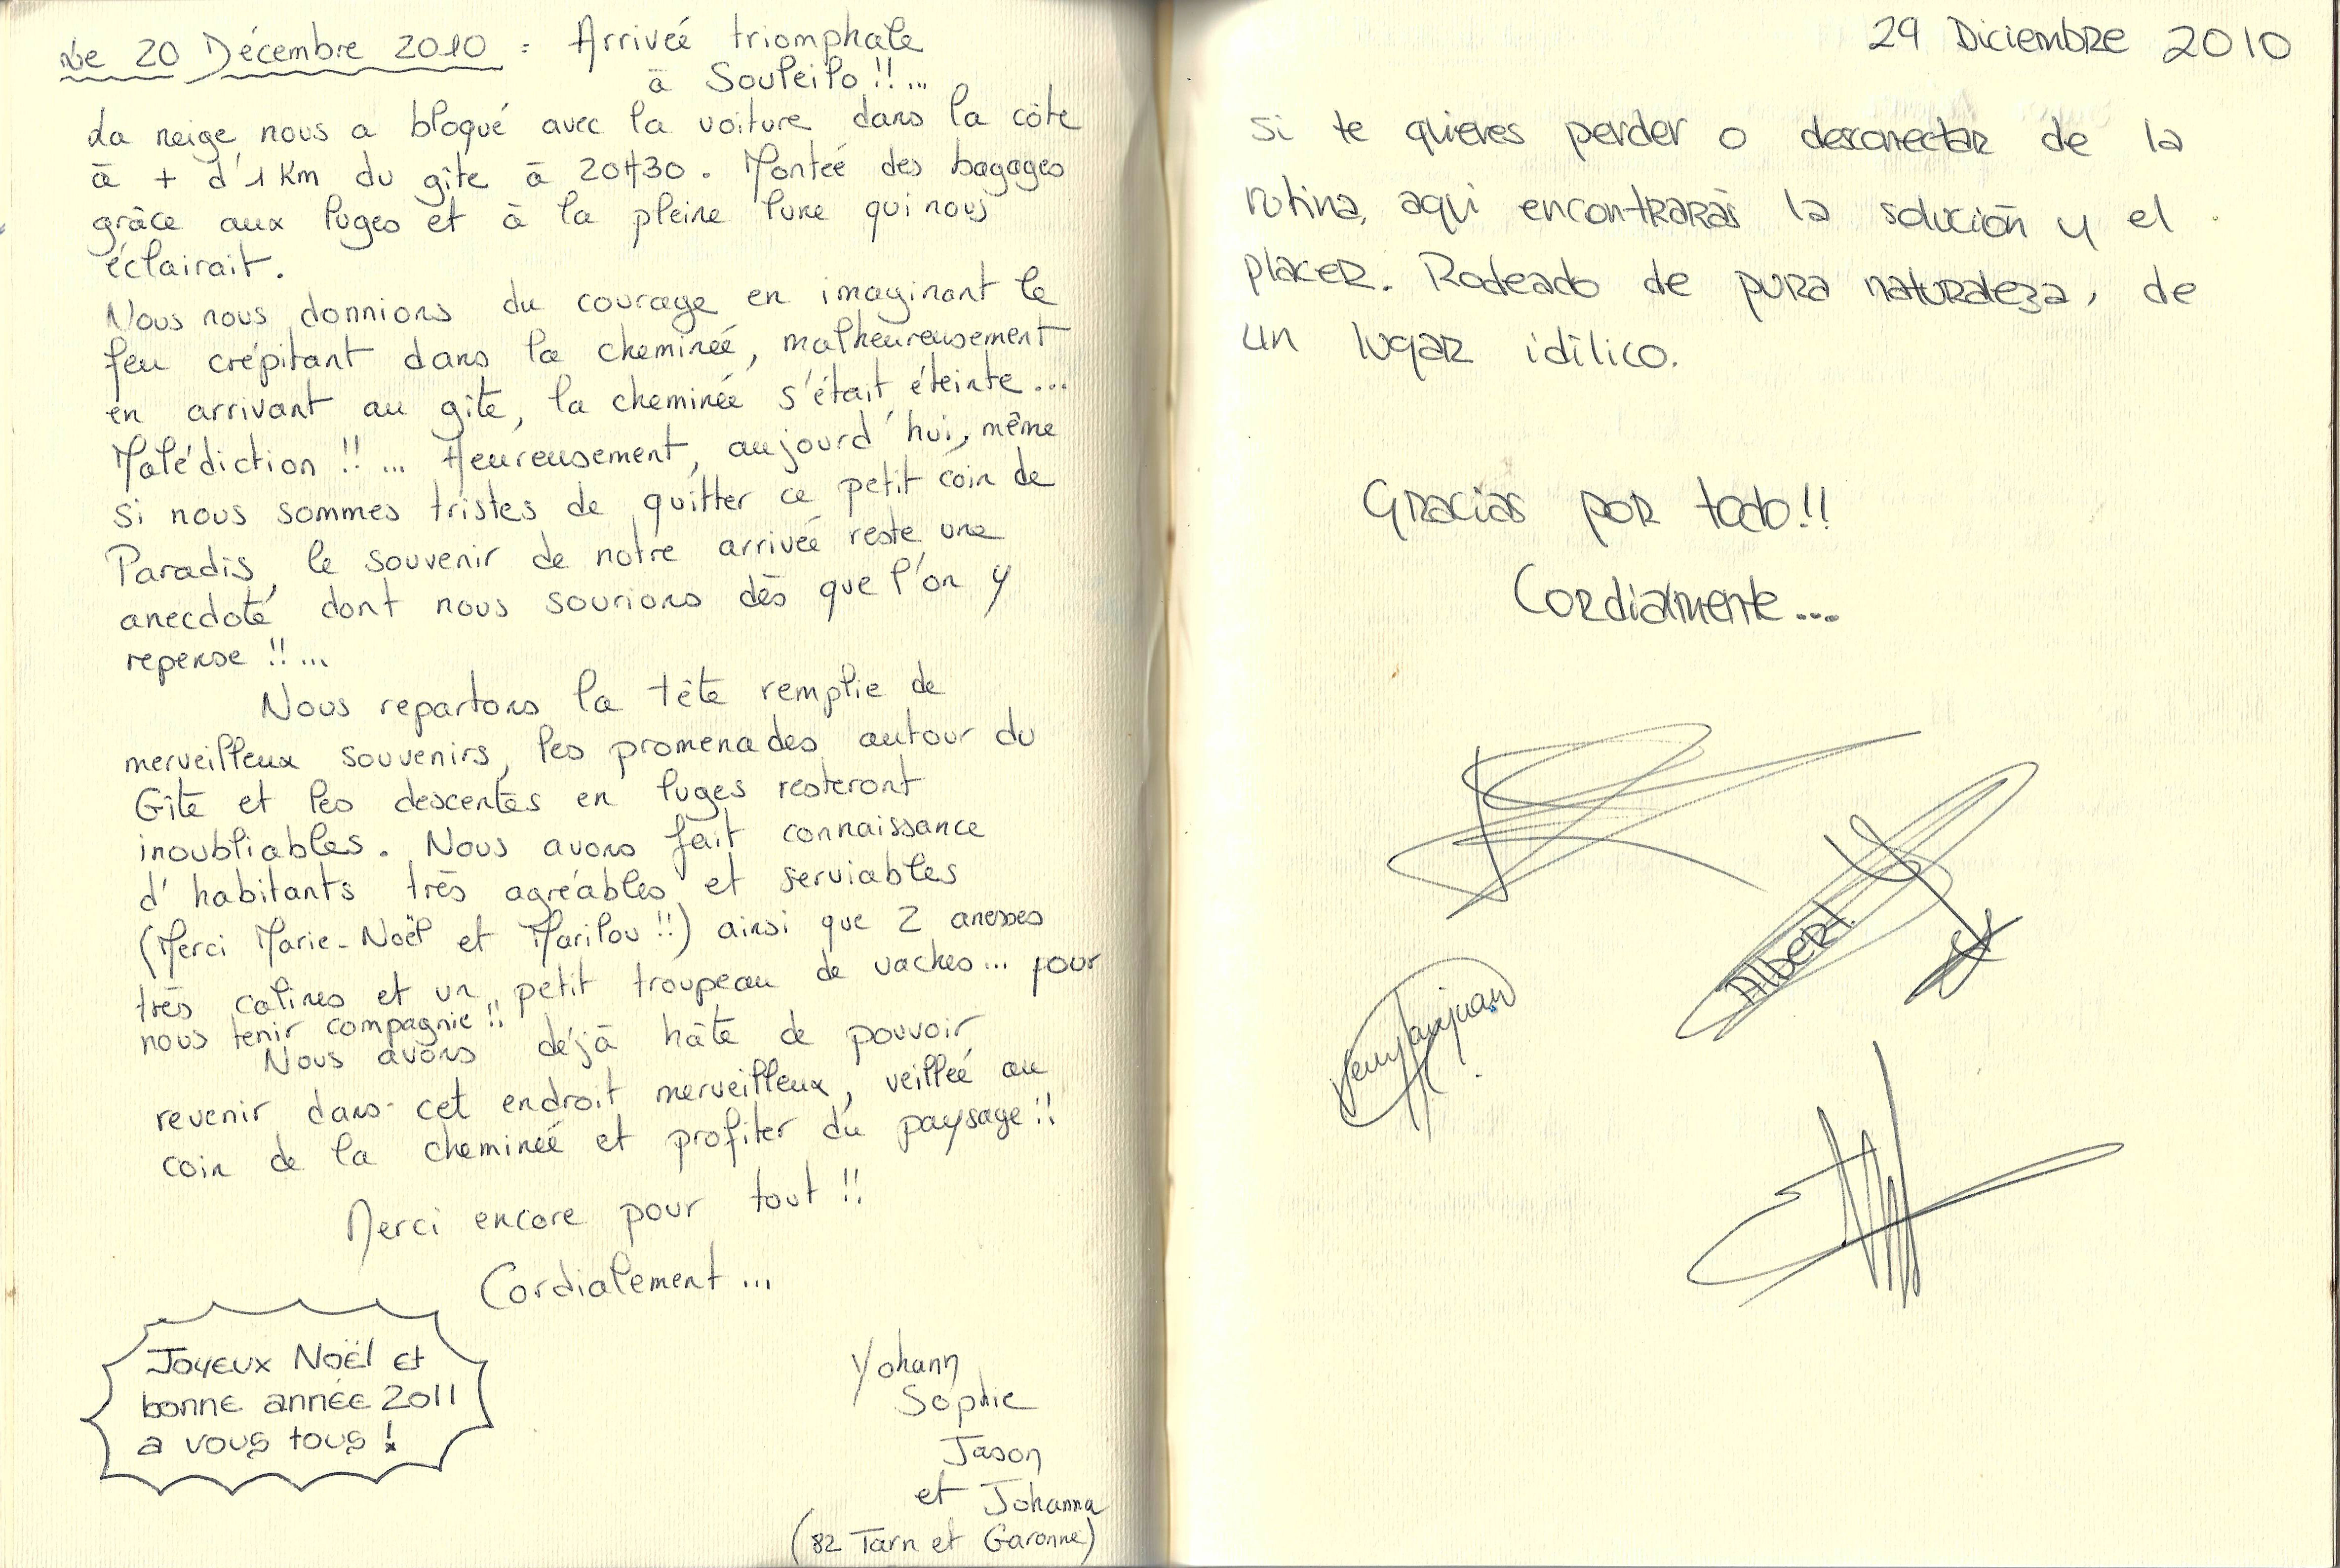 Le 20 Décembre 2010 : Arrivée triomphale
à Souleilo !!...
La neige nous a bloqué avec la voiture dans la côte
à + d'1 Km du gîte à 20H30. Montée des bagages
grâce aux luges et à la pleine lune qui nous
éclairait.
Nous nous donnions du courage en imaginant le
feu crépitant dans la cheminée, malheureusement
en arrivant au gîte, la cheminée s'était éteinte...
Malédiction !!... Heureusement, aujourd'hui, même
si nous sommes tristes de quitter ce petit coin de
Paradis, le souvenir de notre arrivée reste une
anecdote dont nous sourions dès que l'on y
repense !!...
Nous repartons la tête remplie de
merveilleux souvenirs, les promenades autour du
Gîte et les descentes en luges resteront
inoubliables. Nous avons fait connaissance
d'habitants très agréables et serviables
(Merci Marie-Noël et Marilou !!) ainsi que 2 anesses
très calines et un petit troupeau de vaches... pour
nous tenir compagnie !!
Nous avons déjà hâte de pouvoir
revenir dans cet endroit merveilleux, veillée au
coin de la cheminée et profiter du paysage !!
Merci encore pour tout !!
Cordialement...
Joyeux Noël et
bonne année 2011
a vous tous !
Yohann
Sophie
Jason
et Johanna
(82 Tarn et Garonne)
29 Diciembre 2010
Si te quieres perder o desconectar de la
rutina, aquí encontrarás la solución y el
placer. Rodeado de pura naturaleza, de
un lugar idílico.
Gracias por todo!!
Cordialmente...
Albert